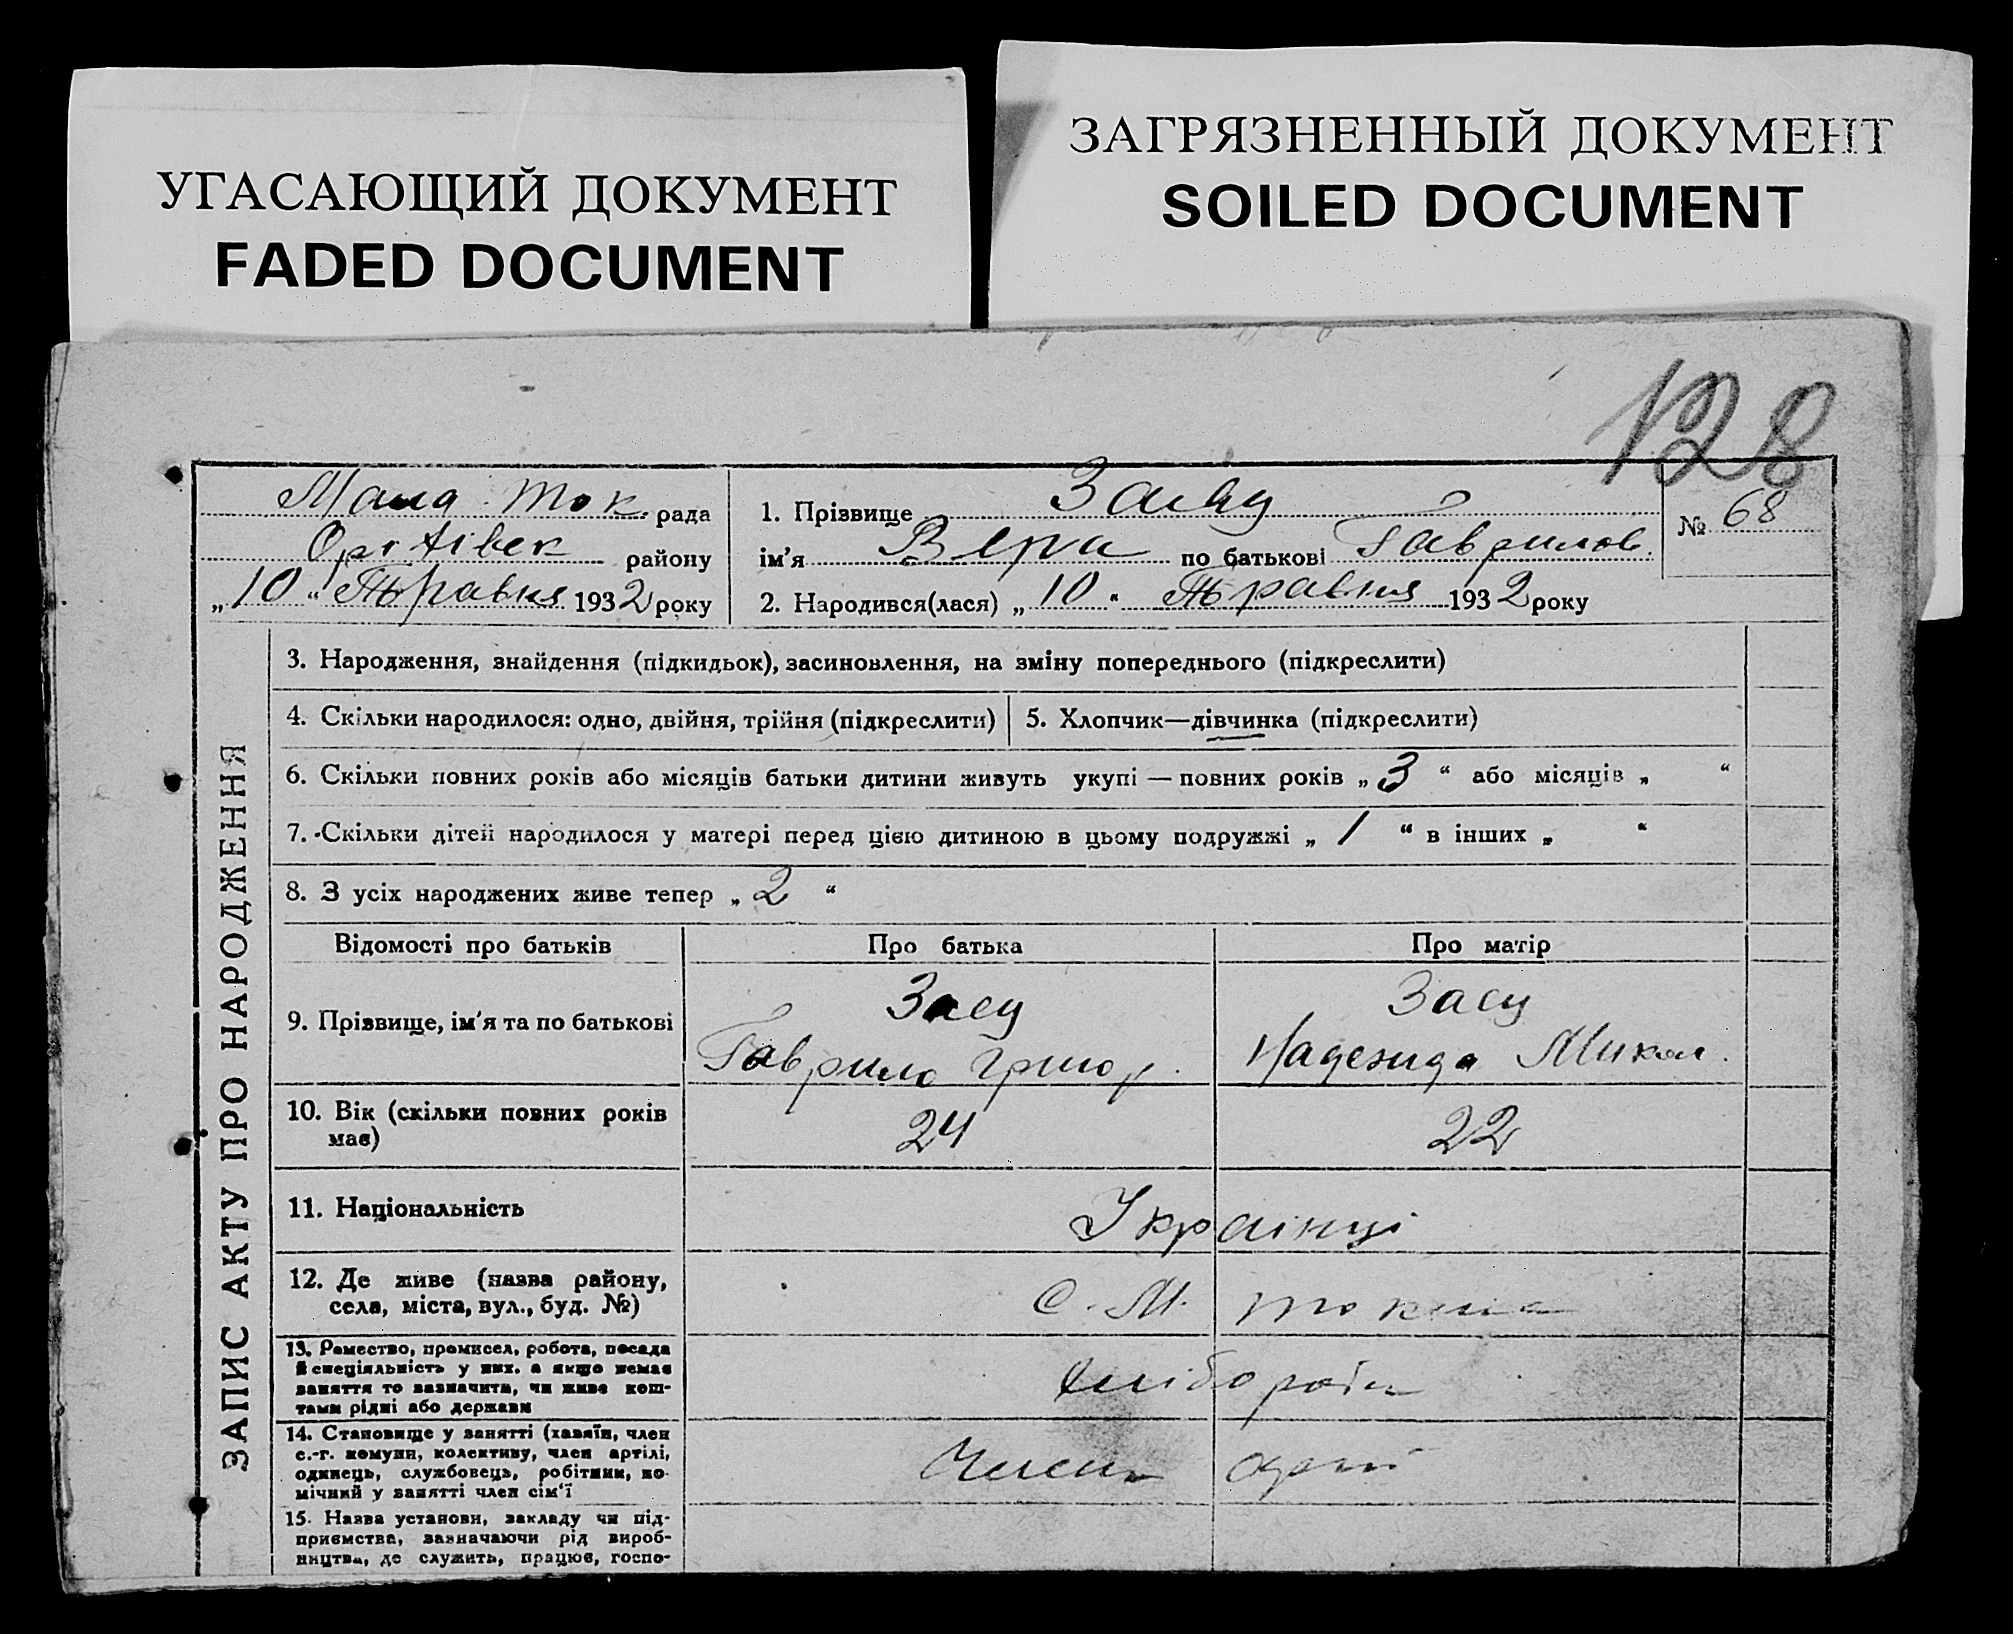 УГАСАЮЩИЙ ДОКУМЕНТ
FADED DOCUMENT
ЗАГРЯЗНЕННЫЙ ДОКУМЕНТ
SOILED DOCUMENT
128
ток. рада
району
„10“ Травня 1932 року
1. Прізвище
№ 68
ім'я Вера по батькові Гаврилов.
2. Народився(лася) „10“ Травня 1932 року
ЗАПИС АКТУ ПРО НАРОДЖЕННЯ
3. Народження, знайдення (підкидьок), засиновлення, на зміну попереднього (підкреслити)
4. Скільки народилося: одно, двійня, трійня (підкреслити)
5. Хлопчик—дівчинка (підкреслити)
6. Скільки повних років або місяців батьки дитини живуть укупі — повних років „3“ або місяців „ “
7. Скільки дітей народилося у матері перед цією дитиною в цьому подружжі „1“ в інших „ “
8. З усіх народжених живе тепер „2“
Відомості про батьків
Про батька
Про матір
9. Прізвище, ім'я та по батькові
Гаврило Григор.
Надежда Микол.
10. Вік (скільки повних років
має)
24
22
11. Національність
Українці
12. Де живе (назва району,
села, міста, вул., буд. №)
С. М.
13. Ремество, промисел, робота, посада
й спеціяльність у них, а якщо немає
заняття то зазначити, чи живе кош-
тами рідні або держави
14. Становище у занятті (хазяїн, член
с.-г. комуни, колективу, член артілі,
одинець, службовець, робітник, по-
мічний у занятті член сім'ї
15. Назва установи, закладу чи під-
приємства, зазначаючи рід вироб-
ництва, де служить, працює, госпо-